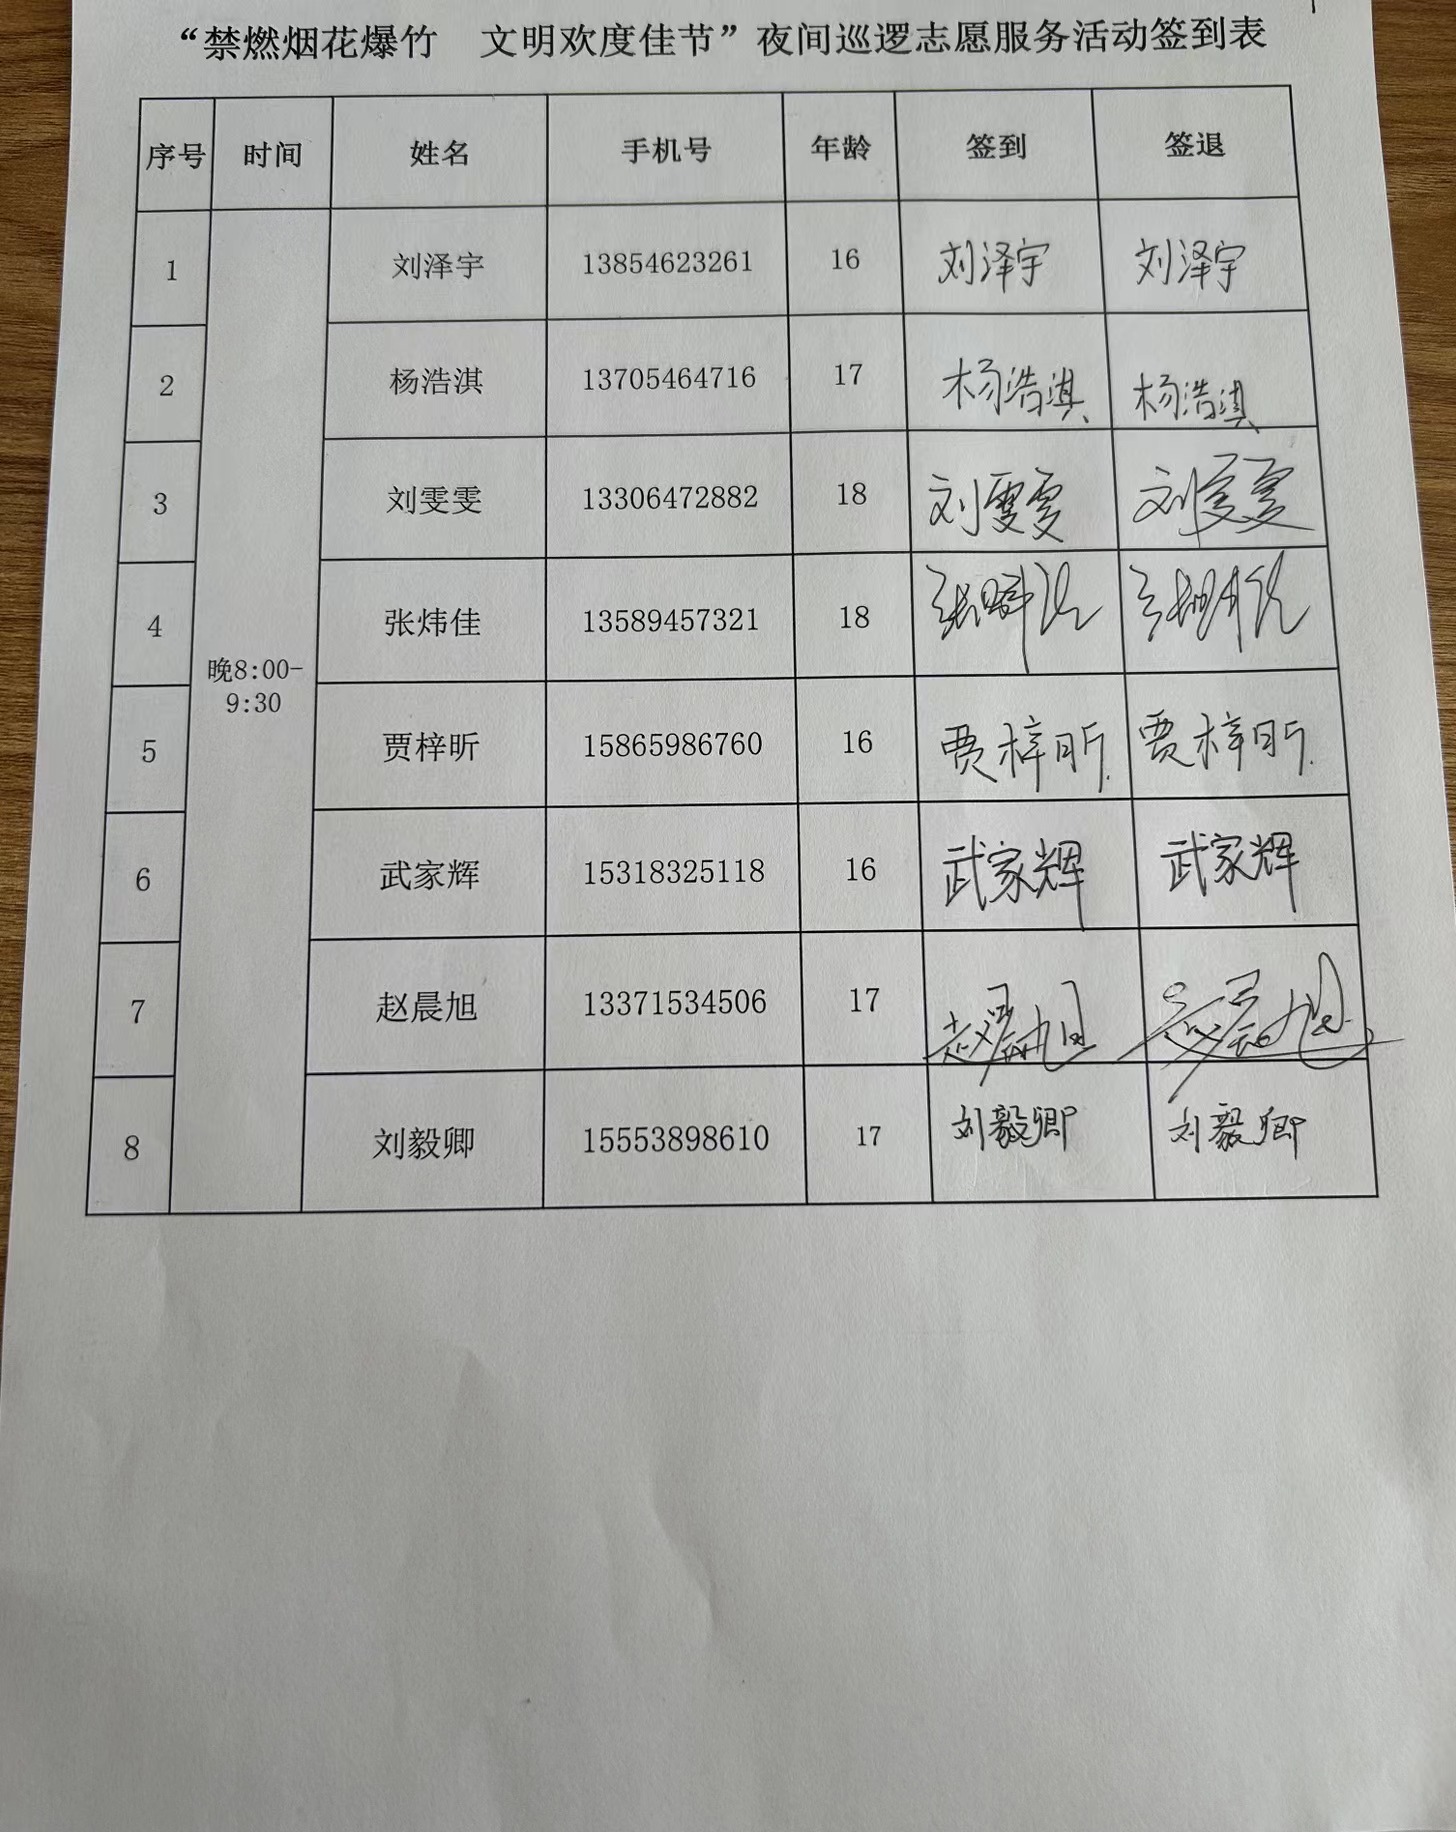 “禁燃烟花爆竹 文明欢度佳节”夜间巡逻志愿服务活动签到表
序号 时间 姓名 手机号 年龄 签到 签退
1 刘泽宇 13854623261 16 刘泽宇 刘泽宇
2 杨浩淇 13705464716 17 杨浩淇 杨浩淇
3 刘雯雯 13306472882 18 刘雯雯 刘雯雯
4 张炜佳 13589457321 18
晚8:00-
9:30
5 贾梓昕 15865986760 16 贾梓昕 贾梓昕
6 武家辉 15318325118 16 武家辉 武家辉
7 赵晨旭 13371534506 17 赵晨旭 赵晨旭
8 刘毅卿 15553898610 17 刘毅卿 刘毅卿